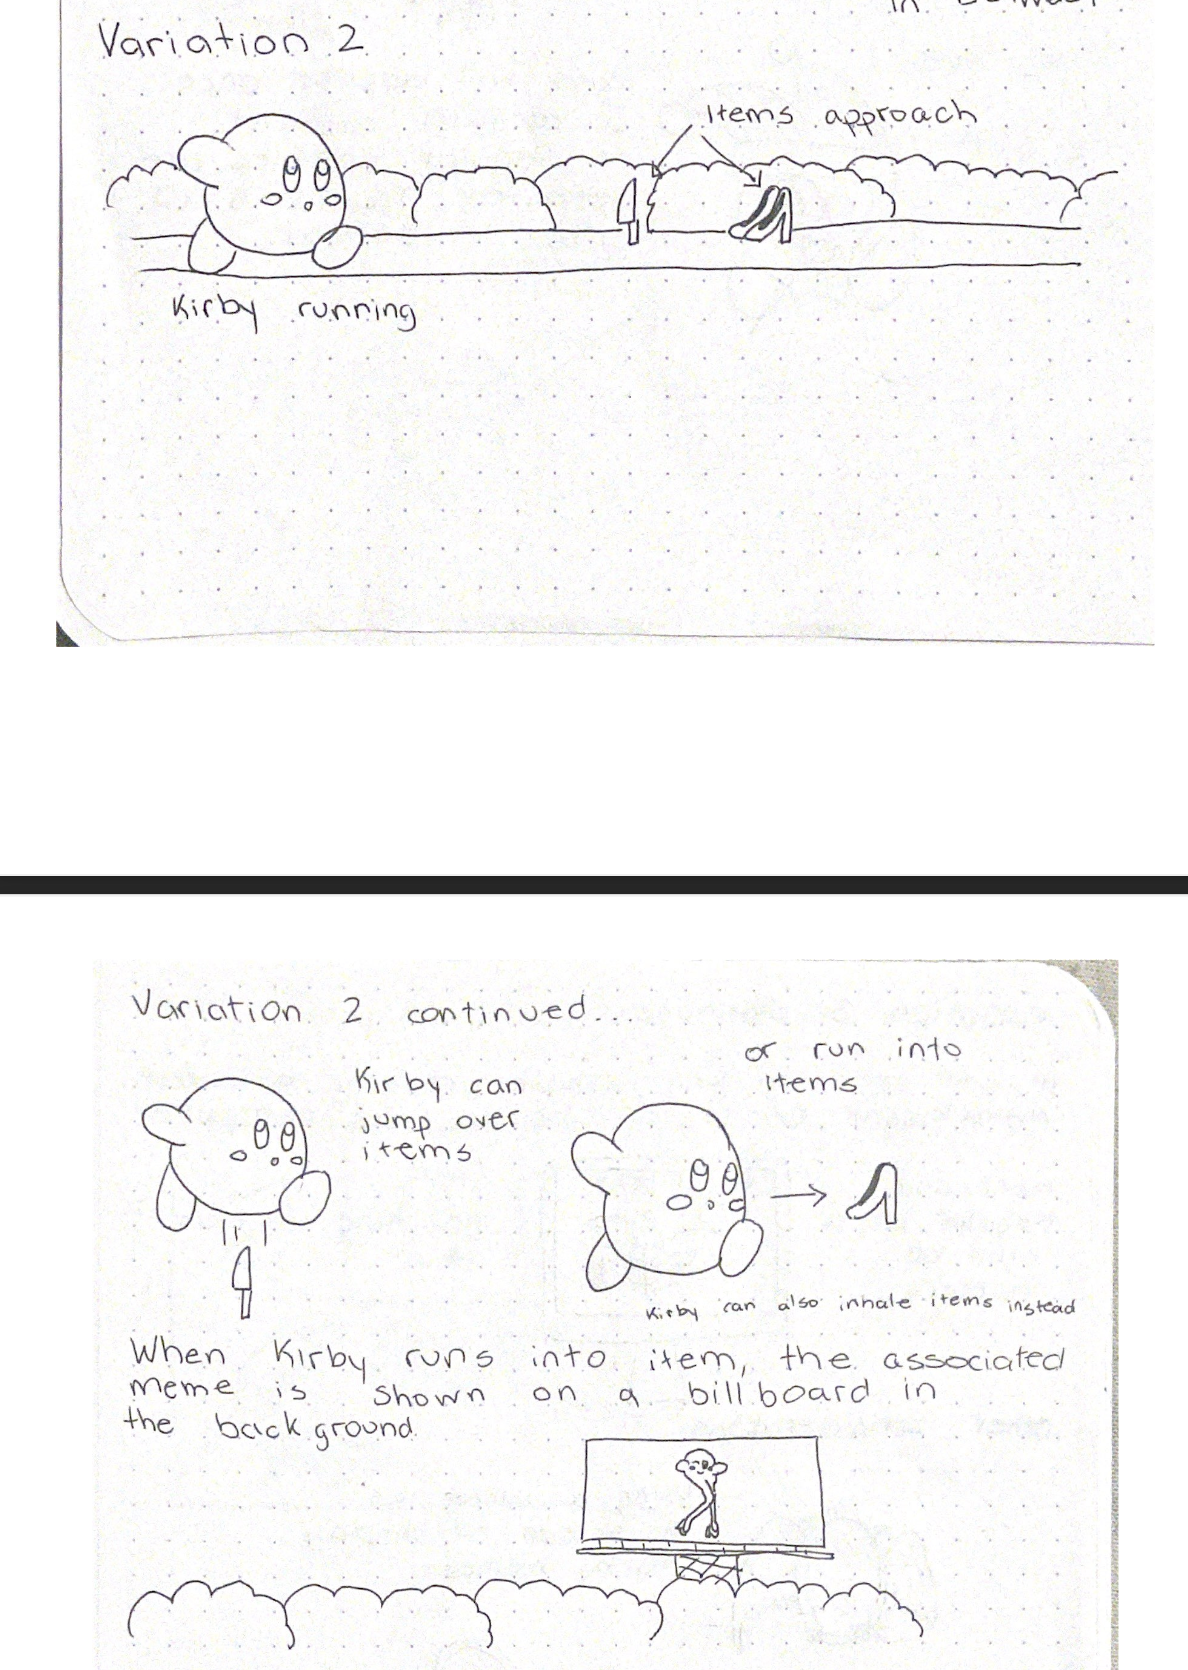 Variation 2
Items approach
Kirby running
Variation 2 continued...
Kirby can
jump over
items
or run into
items
Kirby can also inhale items instead
When Kirby runs into item, the associated
meme is shown on a billboard in
the background.